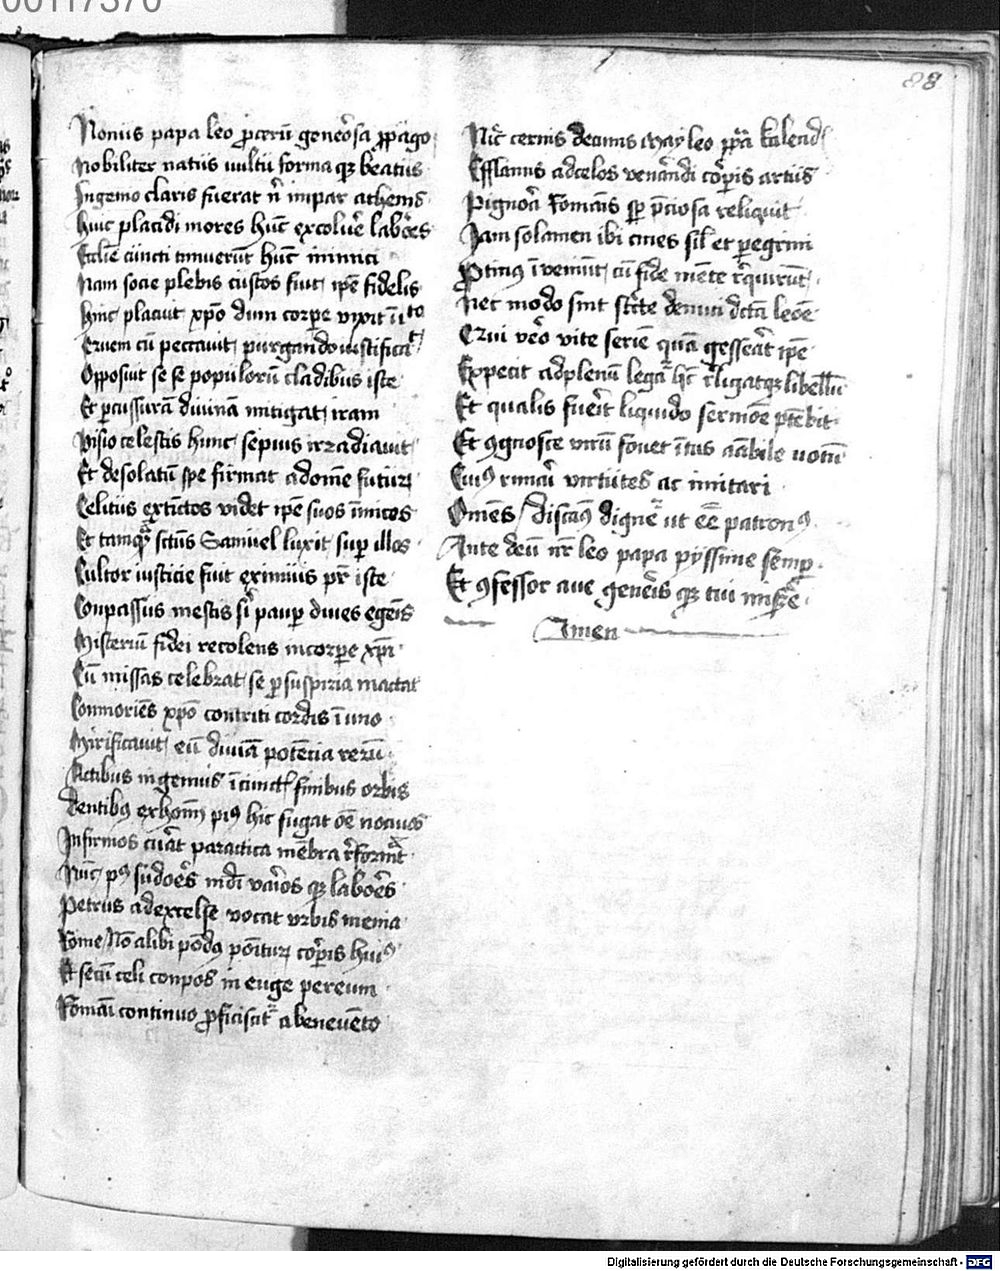 00117370
88
Nonus papa leo p̱cerū geneͦsa ꝓpago
Nobiliter natus uultu forma qꝫ beatus
Ingenio claris fuerat nͦ impar athenis
Huic placidi mores hūc excoluē labores
cūncti timuerūt hūc inimici
Nam socie plebis custos fuit ip̄e fidelis
Huic placuit xp̄o dum corpe vixit
cū peccauit purgando iustificat
Opposuit se se populorū cladibus iste
Et pcussurā diuinā mitigat iram
Visio celestis hunc sepius irradiauit
Et desolatū spe firmat adomē futur
Celitus extīctos videt ip̄e suos īmicos
Et tamqͣ scūs Samuel luxit sup illos
Cultor iusticie fuit eximius pr̄ iste
Conpassus mestis sī paup diues egēis
Misteriū fidei recolens incorpe xp̄i
Cū missas celebrat se p suspiria mactat
Conmoriēs xp̄o contriti cordis ī uno
Mirificauit eū diuīa potēcia rerū
Actibus ingenuis īcunct finibus orbis
pi⁹ hic fugat oē nociuos
Infirmos cuͣt paraitica mēbra rͤformͣt
Nūc p⁹ sudoēs vaͥos qꝫ laboēs
Petrus adexcelse vocat vrbis menia
Rome Nō alibi pōdꝰ pōitur coͬpis hui⁹
Et secū celi conpos in euge pereum
Romāi continuo ꝓficiscitͬ abeneuēto
Nūc cernis decimis may leo ppͣ kalend
Efflanns adcelos venͣndi coͬpis artus
Pignoͣ Romāis sp p̄ciosa reliquit
Jam solamen ibi ciues sil̄ et pegrini
Ꝓtin⁹ īveniūt cū fide mēte rͤquirūt
Nec modo sint demū dcā leōe
vēo vite seriē quā gesseat ip̄e
Expecit adplenū legͣ hͦc rͤligatqꝫ libellū
Et qualis fueͥt liquido sermōe ptēbit
Et ꝯgnosce virū fouet ītus aͣibile uotū
Cui⁹ rimaͥ virtutes ac imitari
Omēs discam⁹ dignēͬ ut eē patron⁹
Ante deū nr̄ leo papa pyssime semp
Et ꝯfessor aue geneͥs qꝫ tui
Amen
Digitalisierung gefördert durch die Deutsche Forschungsgemeinschaft - DFG